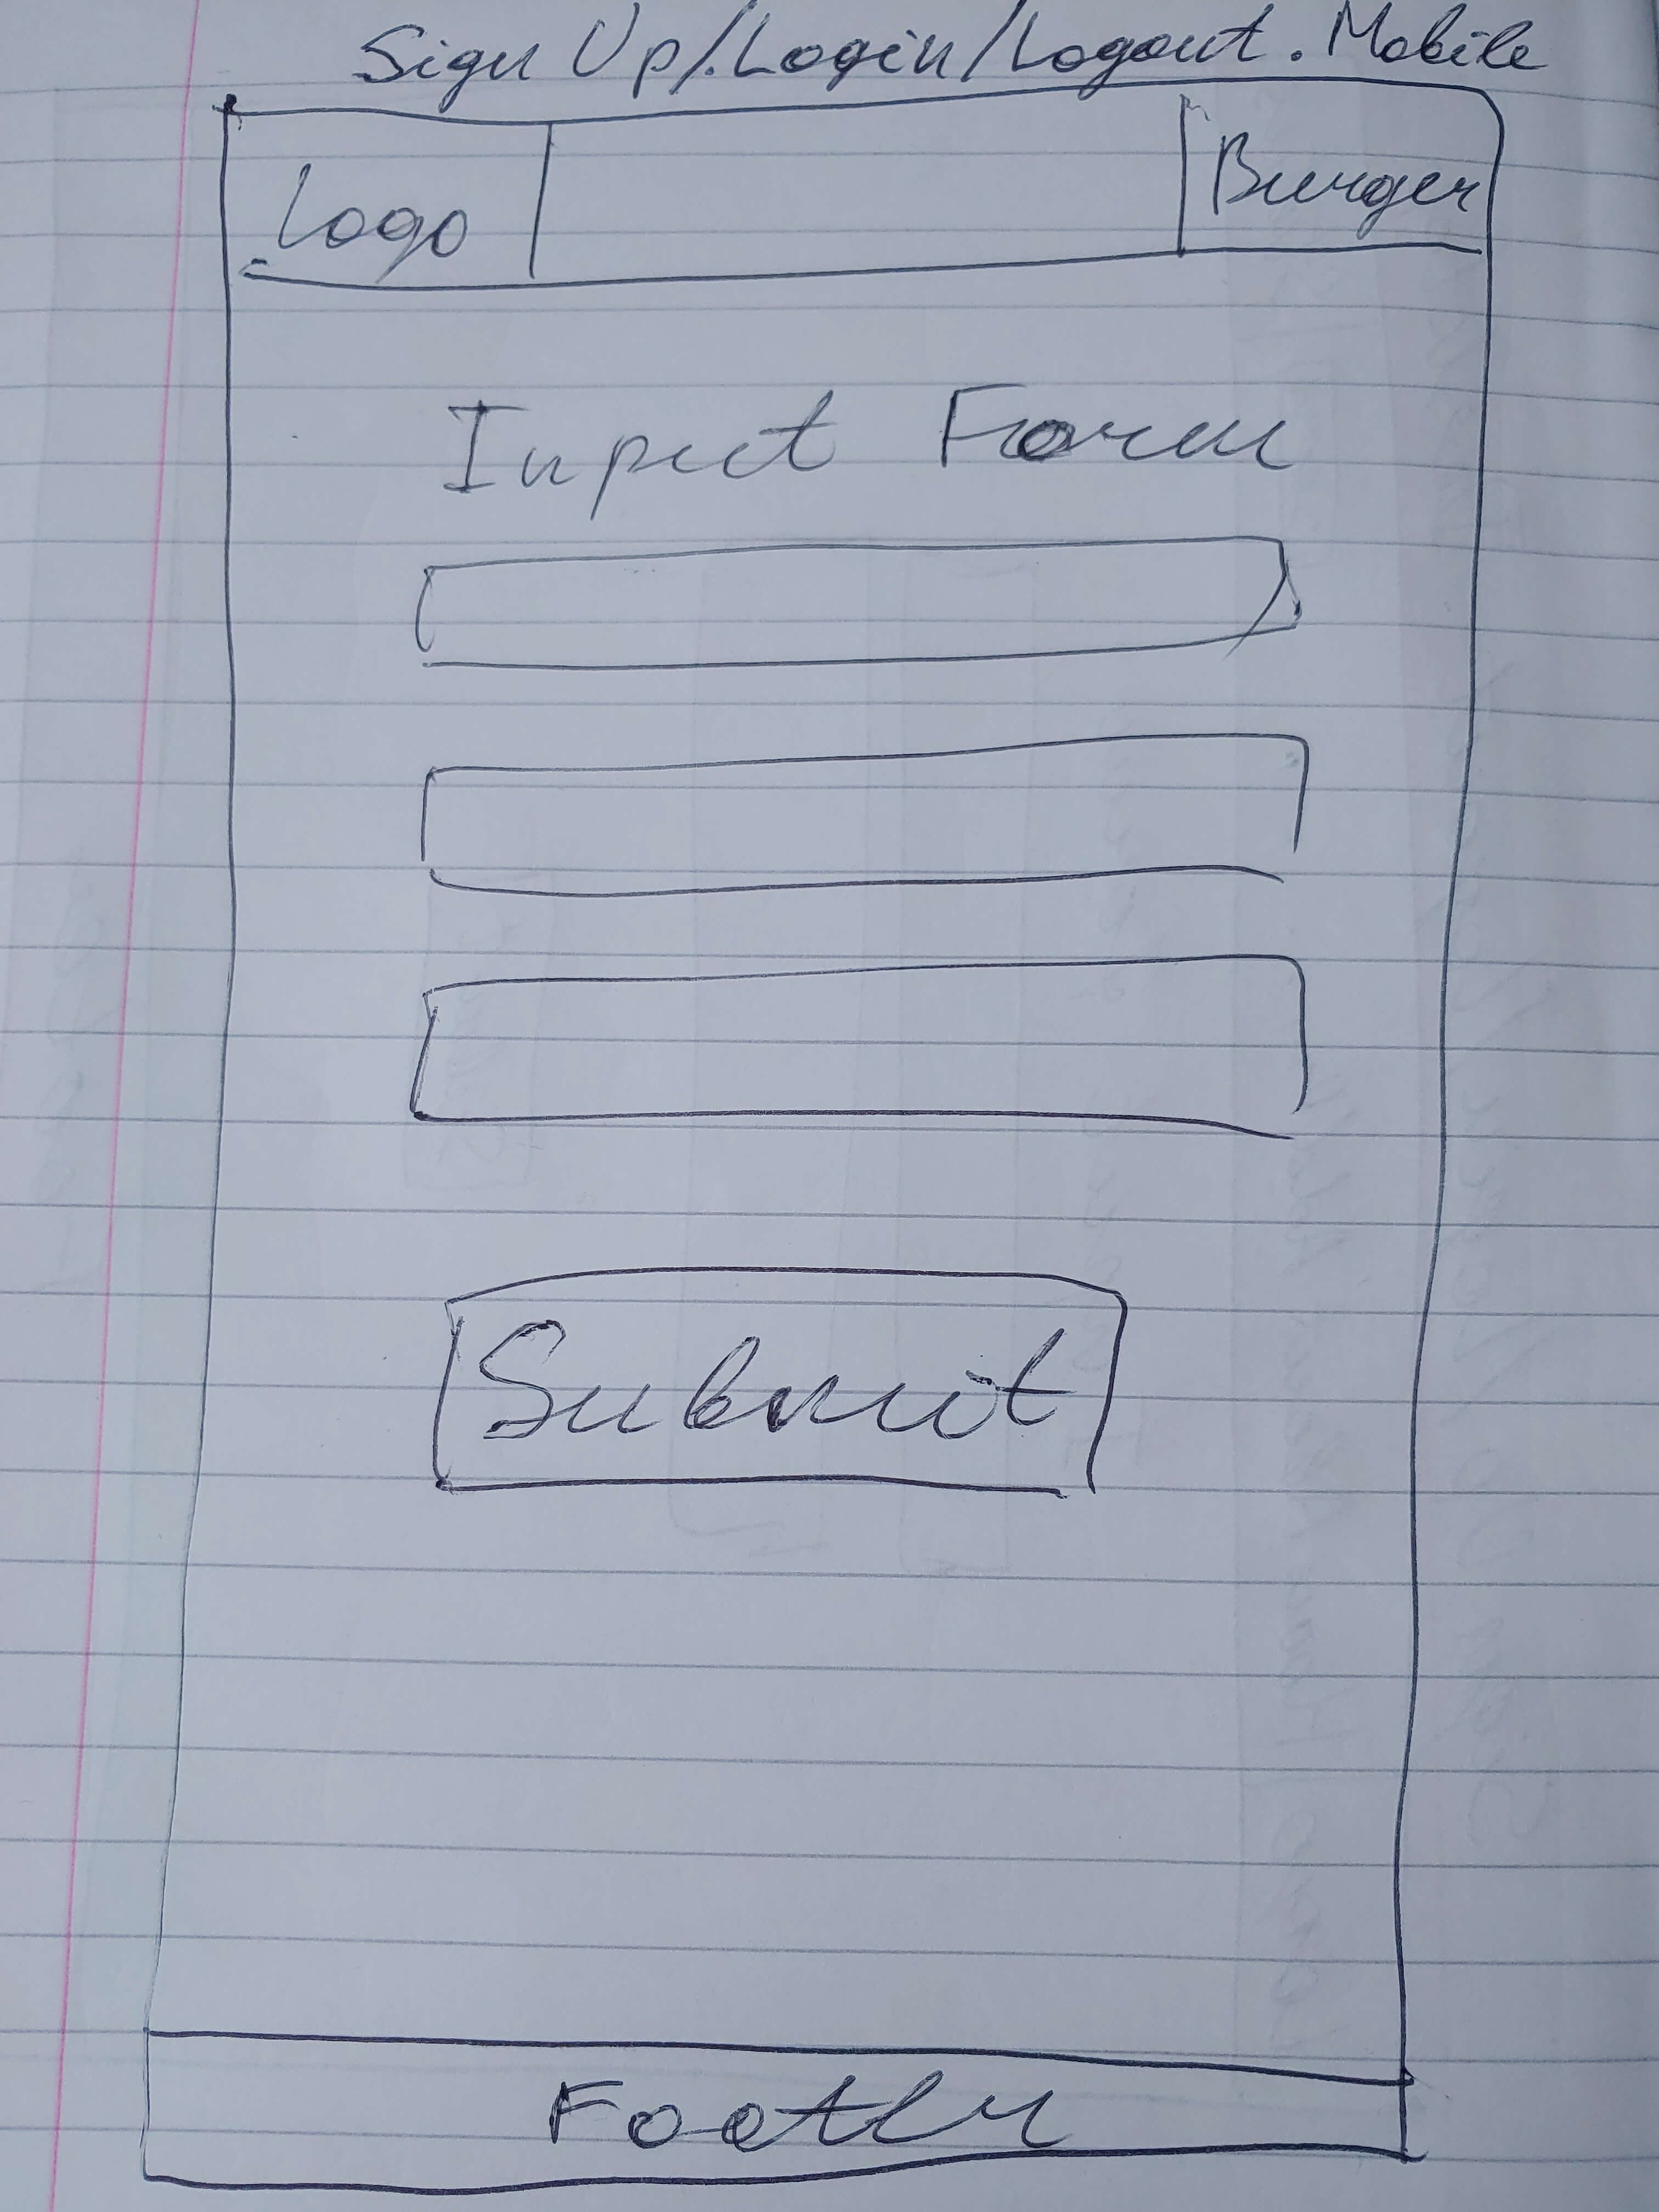 Sign Up/Login/Logout. Mobile
Logo
Burger
Input Form
Submit
Footer